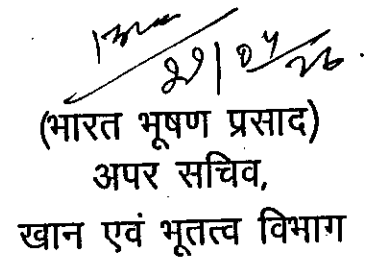 29/04/26.
(भारत भूषण प्रसाद)
अपर सचिव,
खान एवं भूतत्व विभाग